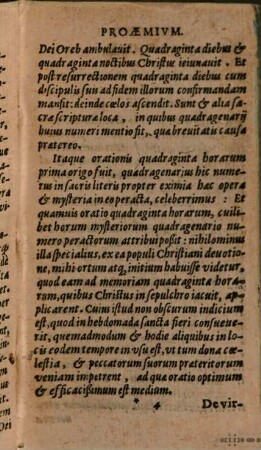 PROÆMIVM.
Dei Oreb ambulauit. Quadraginta diebus &
quadraginta noctibus Christus ieiunauit. Et
post resurrectionem quadraginta diebus cum
discipulis suis ad fidem illorum confirmandam
mansit: deinde cœlos ascendit. Sunt & alia sa-
cræ scripturæ loca, in quibus quadragenarij
huius numeri mentio fit, quæ breuitatis causa
prætereo.
Itaque orationis quadraginta horarum
prima origo fuit, quadragenarius hic nume
rus in sacris literis propter eximia hac opera
& mysteria in eo peracta, celeberrimus: Et
quamuis oratio quadraginta horarum, cuili-
bet horum mysteriorum quadragenario nu-
mero peractorum attribui possit: nihilominus
illa specialius, ex ea populi Christiani deuotio-
ne, mihi ortum atq, initium habuisse videtur,
quod eam ad memoriam quadraginta hora-
rum, quibus Christus in sepulchro iacuit, ap-
plicarent. Cuius istud non obscurum indicium
est, quod in hebdomada sancta fieri consueue-
rit, quemadmodum & hodie aliquibus in lo-
cis eodem tempore in vsu est, vt tum dona cœ-
lestia, & peccatorum suorum præteritorum
veniam impetrent, ad quæ oratio optimum
& efficacissimum est medium.
* 4 De vir-